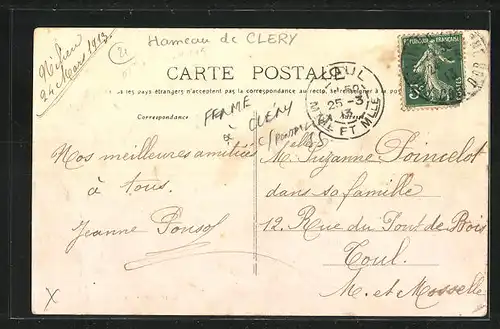 Hameau de CLERY
21
24 Mars 1913
CARTE POSTALE
les pays étrangers n'acceptent pas la correspondance au recto, se
Correspondance
FERME
à CLÉRY
TOUL
25-3
13
MTHE ET MLLE
REPUBLIQUE FRANÇAISE
5c
POSTES
Nos meilleures amitiés
à tous.
Jeanne Ponsol
M. Suzanne Poincelot
dans sa famille
12. Rue du Pont de Bois
Toul.
M. et Moselle
X